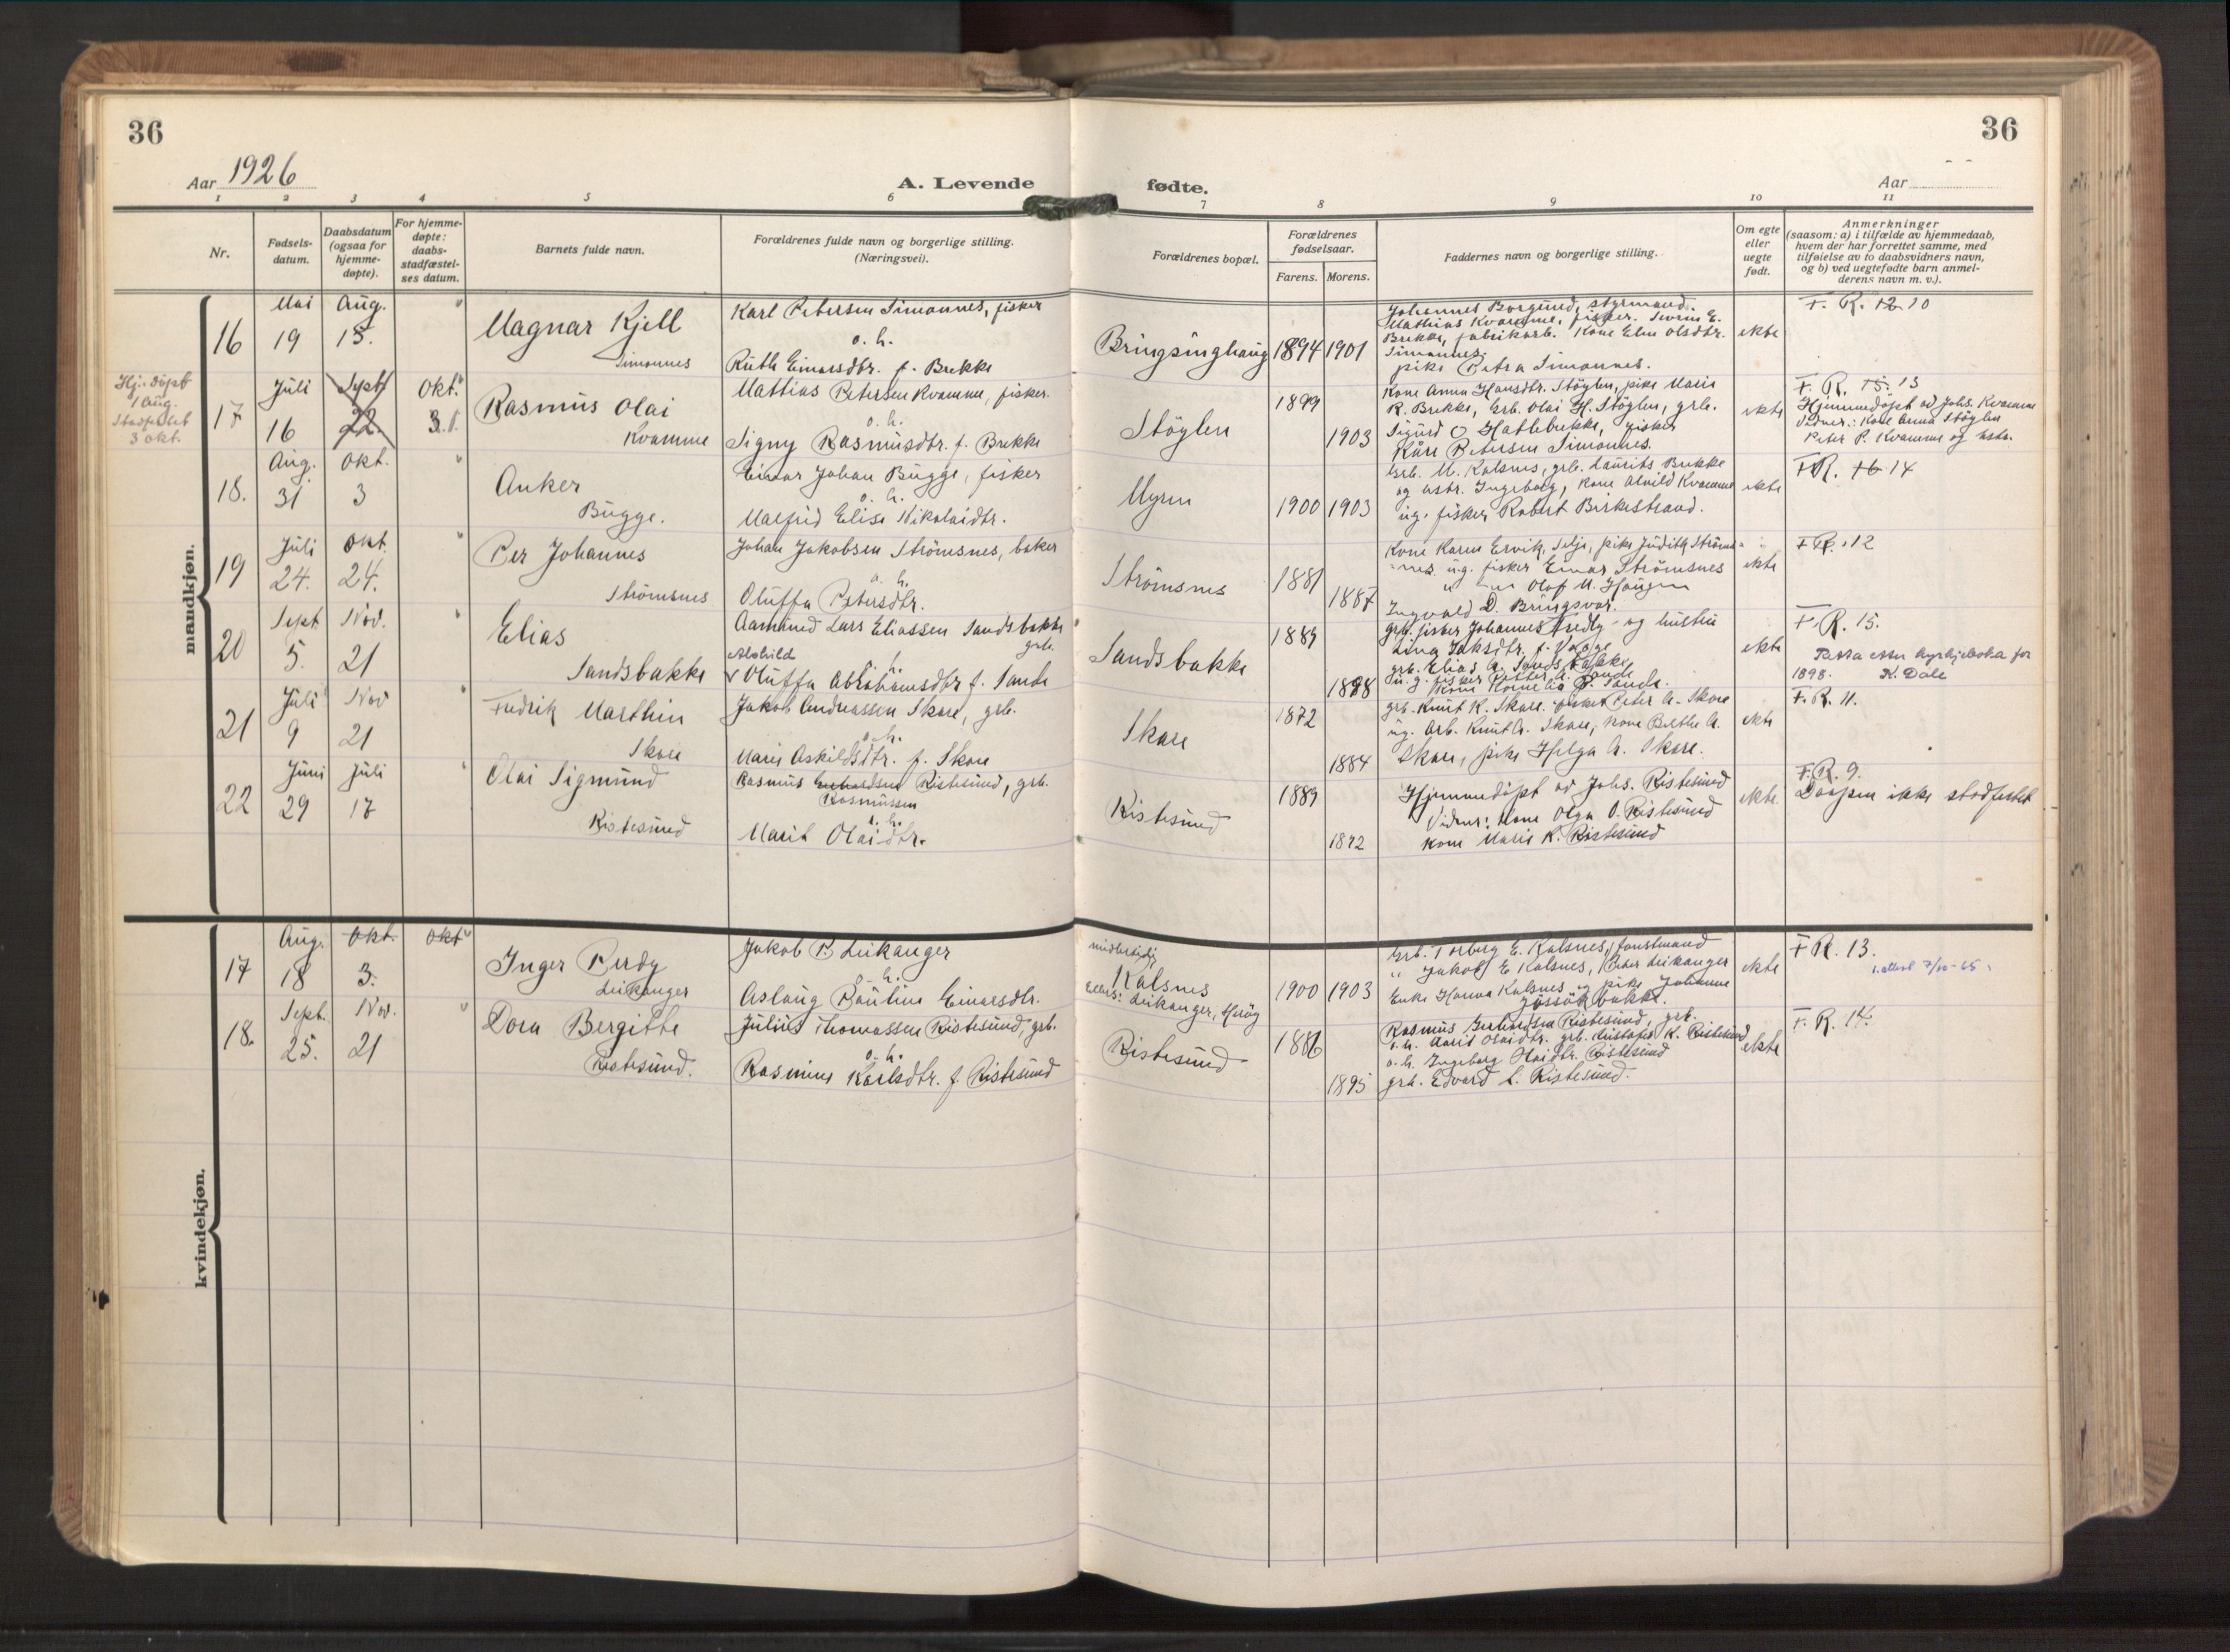 36
36
Aar 1926
A. Levende
fødte.
Aar
1 2 3 4 5 6 7 8 9 10 11
Nr.
Fødsels-
datum.
Daabsdatum
(ogsaa for
hjemme-
døpte).
For hjemme-
døpte:
daabs-
stadfæstel-
ses datum.
Barnets fulde navn.
Forældrenes fulde navn og borgerlige stilling.
(Næringsvei).
Forældrenes bopæl.
Forældrenes
fødselsaar.
Farens. Morens.
Faddernes navn og borgerlige stilling.
Om egte
eller
uegte
født.
Anmerkninger
(saasom: a) i tilfælde av hjemmedaab,
hvem der har forrettet samme, med
tilføielse av to daabsvidners navn,
og b) ved uegtefødte barn anmel-
derens navn m. v.).
mandkjøn.
16
Mai
19
Aug.
15.
"
Magnar Kjell
Simonnes
Karl Petersen Simonnes, fisker
o. h.
Ruth Einarsdtr. f. Brekke
Bringsinghaug
1894 1901
Johannes Borgund, styrmand.
Mathias Kvamme, fisker. Severin E.
Brekke, fabrikarb. Kone Elen Olsdtr.
Simonnes.
pike Petra Simonnes.
ekte
F. R. 12 10
Hj. döpt
1 Aug.
Stadfestet
3 okt.
17
Juli
16
Sept
22.
Okt.
3.
Rasmus Olai
Kvamme
Mattias Petersen Kvamme, fisker.
o. h.
Signy Rasmusdtr. f. Brekke
Stöylen
1899
1903
Kone Anna Hansdtr. Stöylen, pike Marie
R. Brekke, Grb. Olai H. Stöylen, grb.
Sigurd O Hatlebrekke, fisker
Kåre Petersen Simonnes.
ekte
F. R. 15. 13
Hjemmedöpt av Johs. Kvamme
Vidner: Kone Anna Stöylen
Peter P. Kvamme og hstr.
18.
Aug.
31
Okt.
3
"
Anker
Bugge.
Einar Johan Bugge, fisker
o. h.
Malfrid Elise Nikolaidtr.
Myren
1900 1903
Grb. M. Kalsnes, grb. Laurits Brekke
og hstr. Ingeborg, Kone Alvild Kvamme
ug. fisker Robert Birkestrand.
ekte
F R. 16 14
19
Juli
24.
Okt.
24.
"
Per Johannes
Strömsnes
Johan Jakobsen Strömsnes, baker
o. h.
Oluffa Petersdtr.
Strömsnes
1881
1887
Kone Karen Ervik, Selje, pike Judith Ströms-
nes. ug. fisker Einar Strömsnes
" " Olaf M. Haugen
Ingvald D. Bringsvor.
ekte
F R. 12
20
Sept.
5.
Nov.
21
"
Elias
Sandsbakke
Aamund Lars Eliassen Sandsbakke
grb.
Alvhild
Oluffa Abrahamsdtr f. Sande
o. h.
Sandsbakke
1889
1898
grb. fisker Johannes Fredly og hustru
grb. Elias A. Sandsbakke
u. g. fisker Petter A. Sande
Kone Kornelia P. Sande.
ekte
F. R. 15.
Retta etter kyrkjeboka for
1898. K. Dale
21
Juli
9
Nov
21
"
Fredrik Marthin
Skare
Jakob Andreassen Skare, grb.
o. h.
Maria Askildsdtr. f. Skare
Skare
1872
1884
grb. Knut K. Skare. fisker Peter A. Skare
ug. arb. Knut A. Skare, Kone Berthe A.
Skare, pike Helga A. Skare.
ekte
F. R. 11.
22
Juni
29
Juli
17
"
Olai Sigmund
Ristesund
Rasmus Ristesund, grb.
Rasmussen
o. h.
Marit Olaidtr.
Ristesund
1889
1892
Hjemmedöpt av Johs. Ristesund
Vidner: Kone Olga O. Ristesund
Kone Maria K. Ristesund
ekte.
F. R. 9.
Daapen ikke stadfestet
kvindekjøn.
17
Aug.
18
Okt.
3.
Okt
"
Inger Perdy
Leikanger
Jakob P. Leikanger
o. h.
Aslaug Pauline Einarsdtr.
midlertidig
Kalsnes
ellers: Leikanger, Heröy
1900 1903
Grb. Torberg E. Kalsnes, forstmand
" Jakob E Kalsnes, Peter Leikanger
Enke Hanna Kalsnes og pike Johanne
Gjössökbakke.
ekte
F R. 13.
1. attest 7/10-65
18.
Sept.
25.
Nov.
21
"
Dora Bergitte
Ristesund.
Julius Thomassen Ristesund, grb.
o. h.
Rasmine Karlsdtr. f. Ristesund
Ristesund
1886
1895
Rasmus Ristesund, grb.
o. h. Marit Olaidtr. grb. Kristofer K. Ristesund
o. h. Ingeborg Olaidtr. Ristesund
grb. Edvard L. Ristesund.
ekte
F. R. 14.